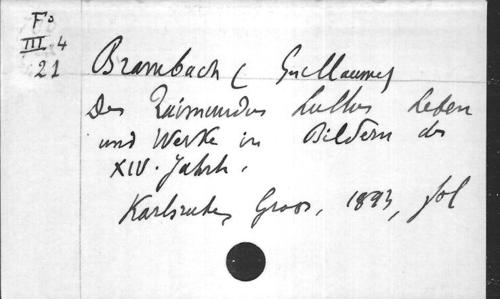 Fº
III 4
21
Brambach (Guillaume)
Des Raimundus Lullus Leben
und Werke in Bildern des
XIV. Jahrh.
Karlsruhe, Groos, 1893, fol